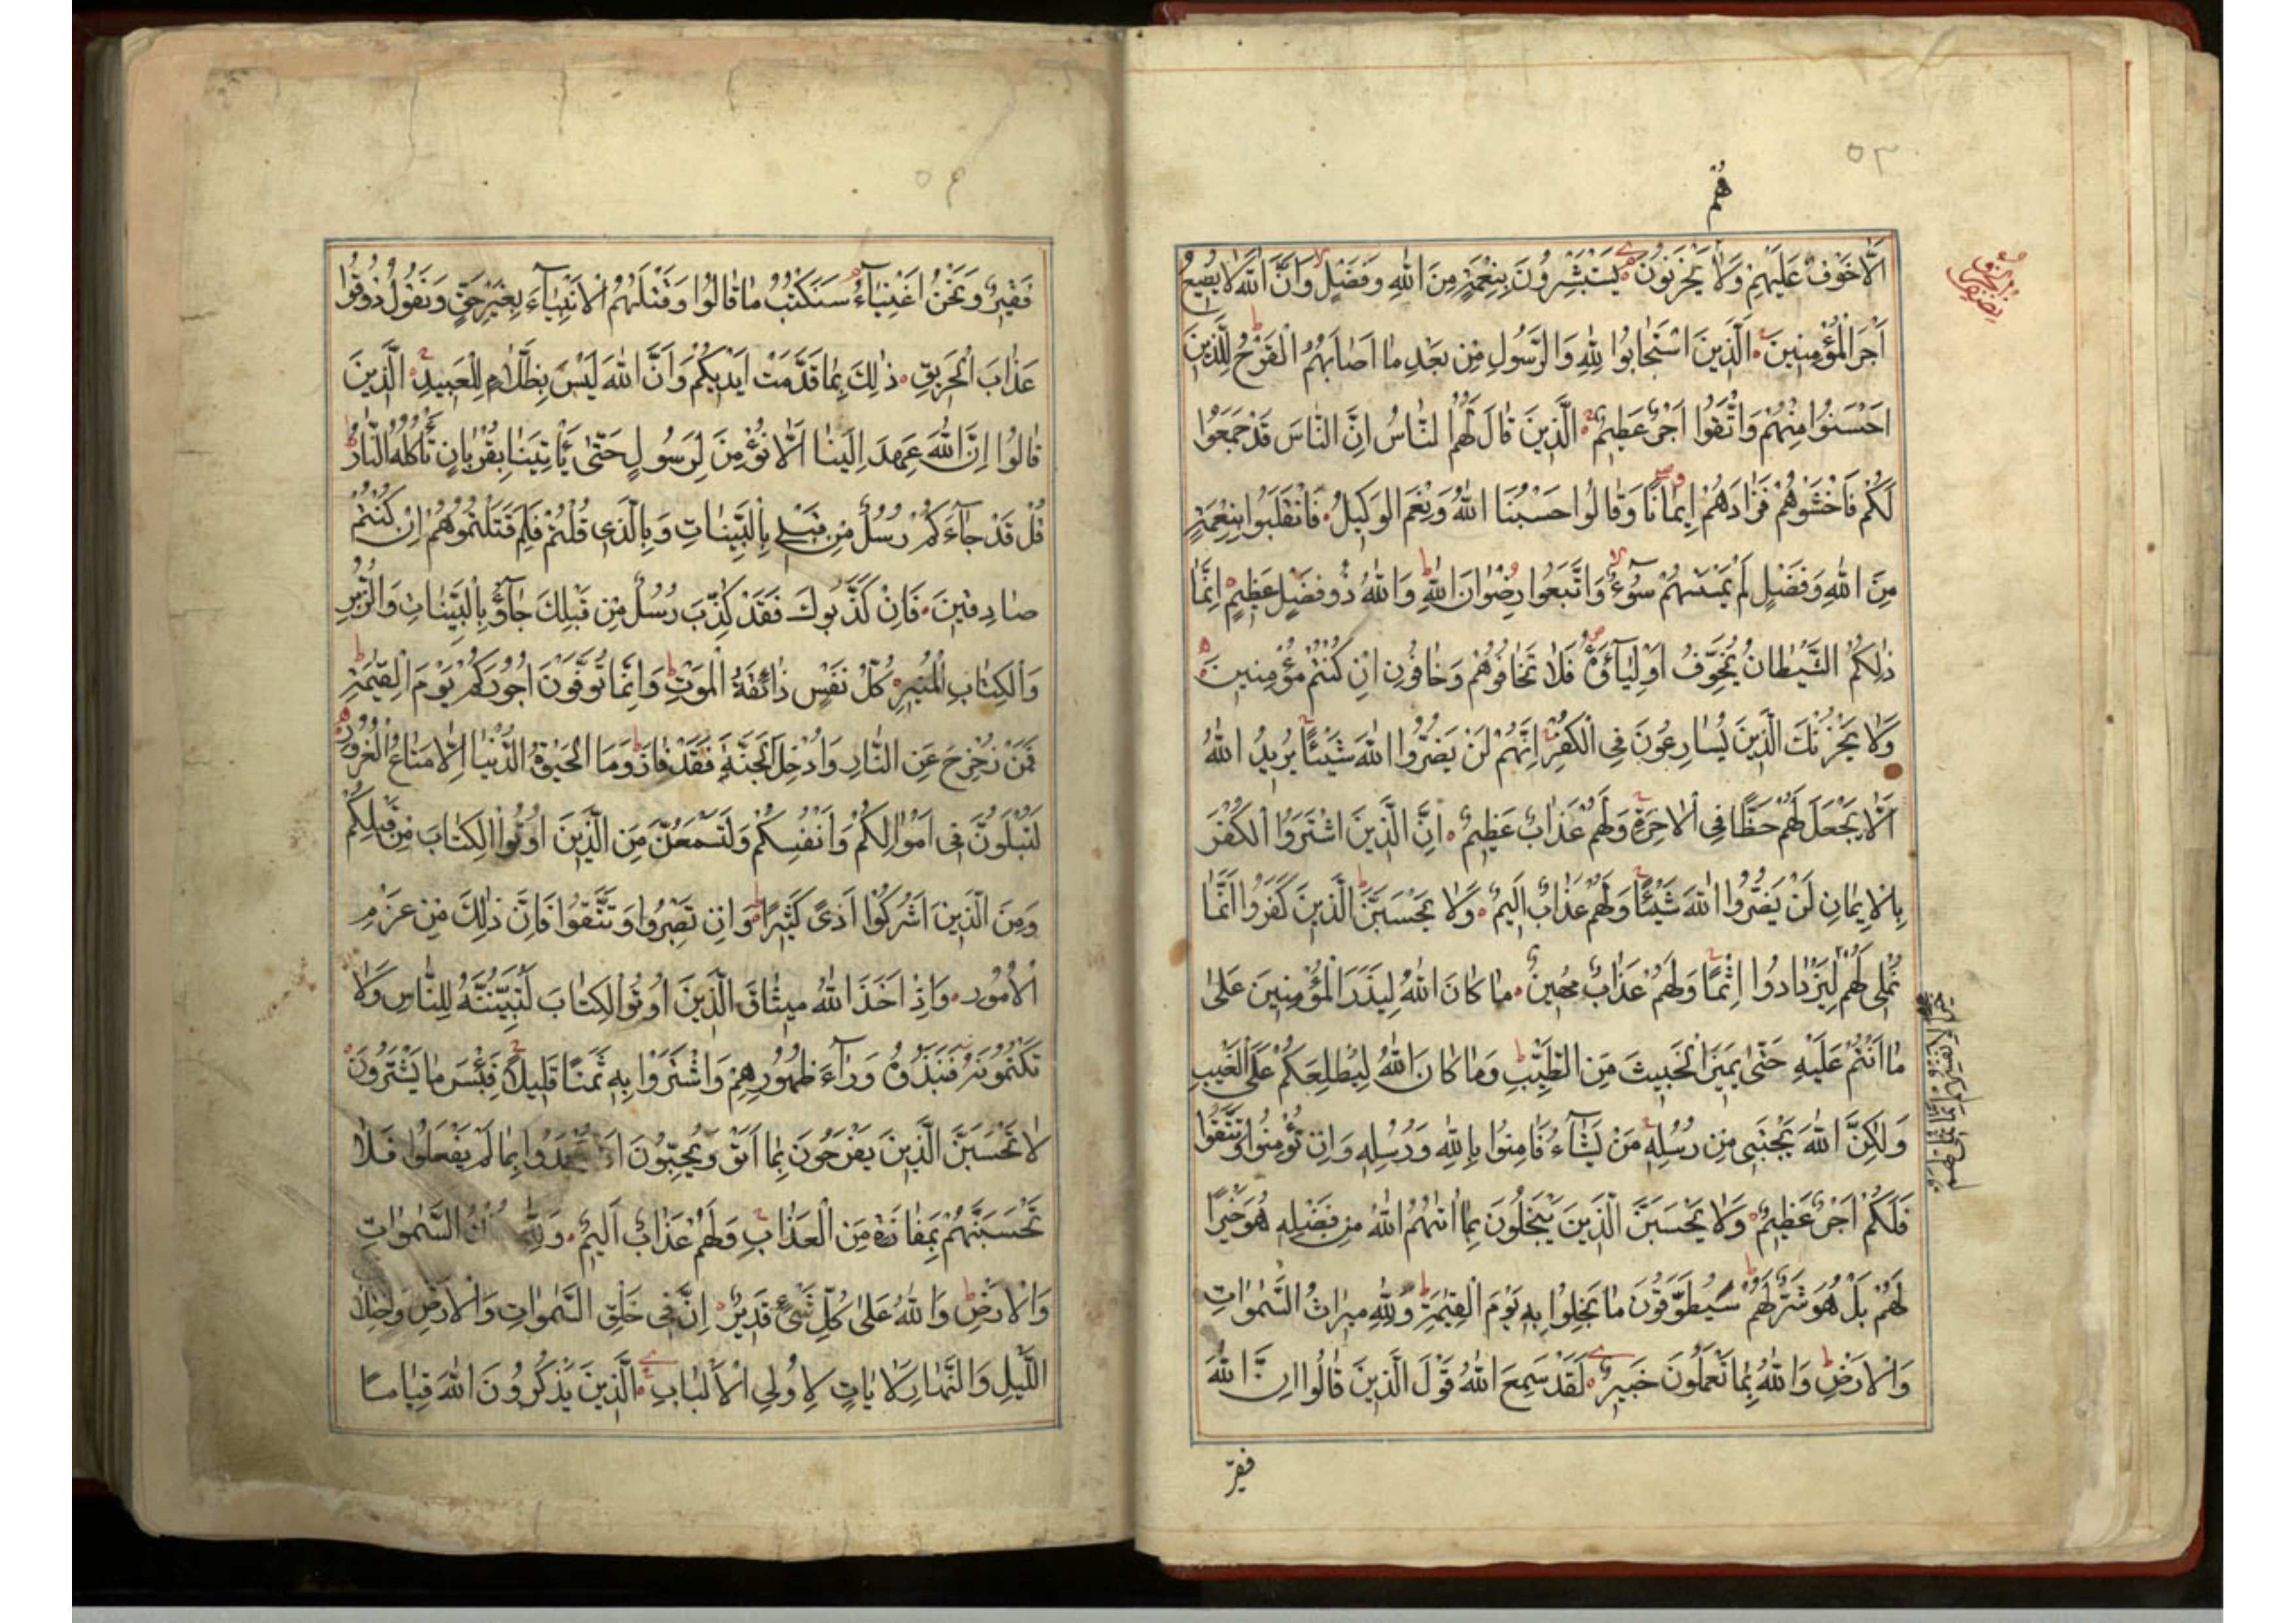 ٥٣
هُمْ
اَلَّا خَوْفٌ عَلَيْهِمْ وَلَا يَحْزَنُونَ يَسْتَبْشِرُونَ بِنِعْمَةٍ مِنَ اللّٰهِ وَفَضْلٍ وَاَنَّ اللّٰهَ لَا يُضِيعُ
اَجْرَ الْمُؤْمِنِينَ الَّذِينَ اسْتَجَابُوا لِلّٰهِ وَالرَّسُولِ مِنْ بَعْدِ مَا اَصَابَهُمُ الْقَرْحُ لِلَّذِينَ
اَحْسَنُوا مِنْهُمْ وَاتَّقَوْا اَجْرٌ عَظِيمٌ الَّذِينَ قَالَ لَهُمُ النَّاسُ اِنَّ النَّاسَ قَدْ جَمَعُوا
لَكُمْ فَاخْشَوْهُمْ فَزَادَهُمْ اِيمَانًا وَقَالُوا حَسْبُنَا اللّٰهُ وَنِعْمَ الْوَكِيلُ فَانْقَلَبُوا بِنِعْمَةٍ
مِنَ اللّٰهِ وَفَضْلٍ لَمْ يَمْسَسْهُمْ سُوءٌ وَاتَّبَعُوا رِضْوَانَ اللّٰهِ وَاللّٰهُ ذُو فَضْلٍ عَظِيمٍ اِنَّمَا
ذٰلِكُمُ الشَّيْطَانُ يُخَوِّفُ اَوْلِيَآءَهُ فَلَا تَخَافُوهُمْ وَخَافُونِ اِنْ كُنْتُمْ مُؤْمِنِينَ
وَلَا يَحْزُنْكَ الَّذِينَ يُسَارِعُونَ فِى الْكُفْرِ اِنَّهُمْ لَنْ يَضُرُّوا اللّٰهَ شَيْئًا يُرِيدُ اللّٰهُ
اَلَّا يَجْعَلَ لَهُمْ حَظًّا فِى الْاٰخِرَةِ وَلَهُمْ عَذَابٌ عَظِيمٌ اِنَّ الَّذِينَ اشْتَرَوُا الْكُفْرَ
بِالْاِيمَانِ لَنْ يَضُرُّوا اللّٰهَ شَيْئًا وَلَهُمْ عَذَابٌ اَلِيمٌ وَلَا يَحْسَبَنَّ الَّذِينَ كَفَرُوا اَنَّمَا
نُمْلِى لَهُمْ لِيَزْدَادُوا اِثْمًا وَلَهُمْ عَذَابٌ مُهِينٌ مَا كَانَ اللّٰهُ لِيَذَرَ الْمُؤْمِنِينَ عَلٰى
مَا اَنْتُمْ عَلَيْهِ حَتّٰى يَمِيزَ الْخَبِيثَ مِنَ الطَّيِّبِ وَمَا كَانَ اللّٰهُ لِيُطْلِعَكُمْ عَلَى الْغَيْبِ
وَلٰكِنَّ اللّٰهَ يَجْتَبِى مِنْ رُسُلِهِ مَنْ يَشَآءُ فَاٰمِنُوا بِاللّٰهِ وَرُسُلِهِ وَاِنْ تُؤْمِنُوا وَتَتَّقُوا
فَلَكُمْ اَجْرٌ عَظِيمٌ وَلَا يَحْسَبَنَّ الَّذِينَ يَبْخَلُونَ بِمَا اٰتٰهُمُ اللّٰهُ مِنْ فَضْلِهِ هُوَ خَيْرًا
لَهُمْ بَلْ هُوَ شَرٌّ لَهُمْ سَيُطَوَّقُونَ مَا بَخِلُوا بِهِ يَوْمَ الْقِيٰمَةِ وَلِلّٰهِ مِيرَاثُ السَّمٰوَاتِ
وَالْاَرْضِ وَاللّٰهُ بِمَا تَعْمَلُونَ خَبِيرٌ لَقَدْ سَمِعَ اللّٰهُ قَوْلَ الَّذِينَ قَالُوا اِنَّ اللّٰهَ
فقيرٌ
فَقِيرٌ وَنَحْنُ اَغْنِيَآءُ سَنَكْتُبُ مَا قَالُوا وَقَتْلَهُمُ الْاَنْبِيَآءَ بِغَيْرِ حَقٍّ وَنَقُولُ ذُوقُوا
عَذَابَ الْحَرِيقِ ذٰلِكَ بِمَا قَدَّمَتْ اَيْدِيكُمْ وَاَنَّ اللّٰهَ لَيْسَ بِظَلَّامٍ لِلْعَبِيدِ الَّذِينَ
قَالُوا اِنَّ اللّٰهَ عَهِدَ اِلَيْنَا اَلَّا نُؤْمِنَ لِرَسُولٍ حَتّٰى يَأْتِيَنَا بِقُرْبَانٍ تَأْكُلُهُ النَّارُ
قُلْ قَدْ جَآءَكُمْ رُسُلٌ مِنْ قَبْلِى بِالْبَيِّنَاتِ وَبِالَّذِى قُلْتُمْ فَلِمَ قَتَلْتُمُوهُمْ اِنْ كُنْتُمْ
صَادِقِينَ فَاِنْ كَذَّبُوكَ فَقَدْ كُذِّبَ رُسُلٌ مِنْ قَبْلِكَ جَآؤُ بِالْبَيِّنَاتِ وَالزُّبُرِ
وَالْكِتَابِ الْمُنِيرِ كُلُّ نَفْسٍ ذَائِقَةُ الْمَوْتِ وَاِنَّمَا تُوَفَّوْنَ اُجُورَكُمْ يَوْمَ الْقِيٰمَةِ
فَمَنْ زُحْزِحَ عَنِ النَّارِ وَاُدْخِلَ الْجَنَّةَ فَقَدْ فَازَ وَمَا الْحَيٰوةُ الدُّنْيَا اِلَّا مَتَاعُ الْغُرُورِ
لَتُبْلَوُنَّ فِى اَمْوَالِكُمْ وَاَنْفُسِكُمْ وَلَتَسْمَعُنَّ مِنَ الَّذِينَ اُوتُوا الْكِتَابَ مِنْ قَبْلِكُمْ
وَمِنَ الَّذِينَ اَشْرَكُوا اَذًى كَثِيرًا وَاِنْ تَصْبِرُوا وَتَتَّقُوا فَاِنَّ ذٰلِكَ مِنْ عَزْمِ
الْاُمُورِ وَاِذْ اَخَذَ اللّٰهُ مِيثَاقَ الَّذِينَ اُوتُوا الْكِتَابَ لَتُبَيِّنُنَّهُ لِلنَّاسِ وَلَا
تَكْتُمُونَهُ فَنَبَذُوهُ وَرَآءَ ظُهُورِهِمْ وَاشْتَرَوْا بِهِ ثَمَنًا قَلِيلًا فَبِئْسَ مَا يَشْتَرُونَ
لَا تَحْسَبَنَّ الَّذِينَ يَفْرَحُونَ بِمَا اَتَوْا وَيُحِبُّونَ اَنْ يُحْمَدُوا بِمَا لَمْ يَفْعَلُوا فَلَا
تَحْسَبَنَّهُمْ بِمَفَازَةٍ مِنَ الْعَذَابِ وَلَهُمْ عَذَابٌ اَلِيمٌ وَلِلّٰهِ السَّمٰوَاتِ
وَالْاَرْضِ وَاللّٰهُ عَلٰى كُلِّ شَىْءٍ قَدِيرٌ اِنَّ فِى خَلْقِ السَّمٰوَاتِ وَالْاَرْضِ وَاخْتِلَافِ
اللَّيْلِ وَالنَّهَارِ لَاٰيَاتٍ لِاُولِى الْاَلْبَابِ الَّذِينَ يَذْكُرُونَ اللّٰهَ قِيَامًا